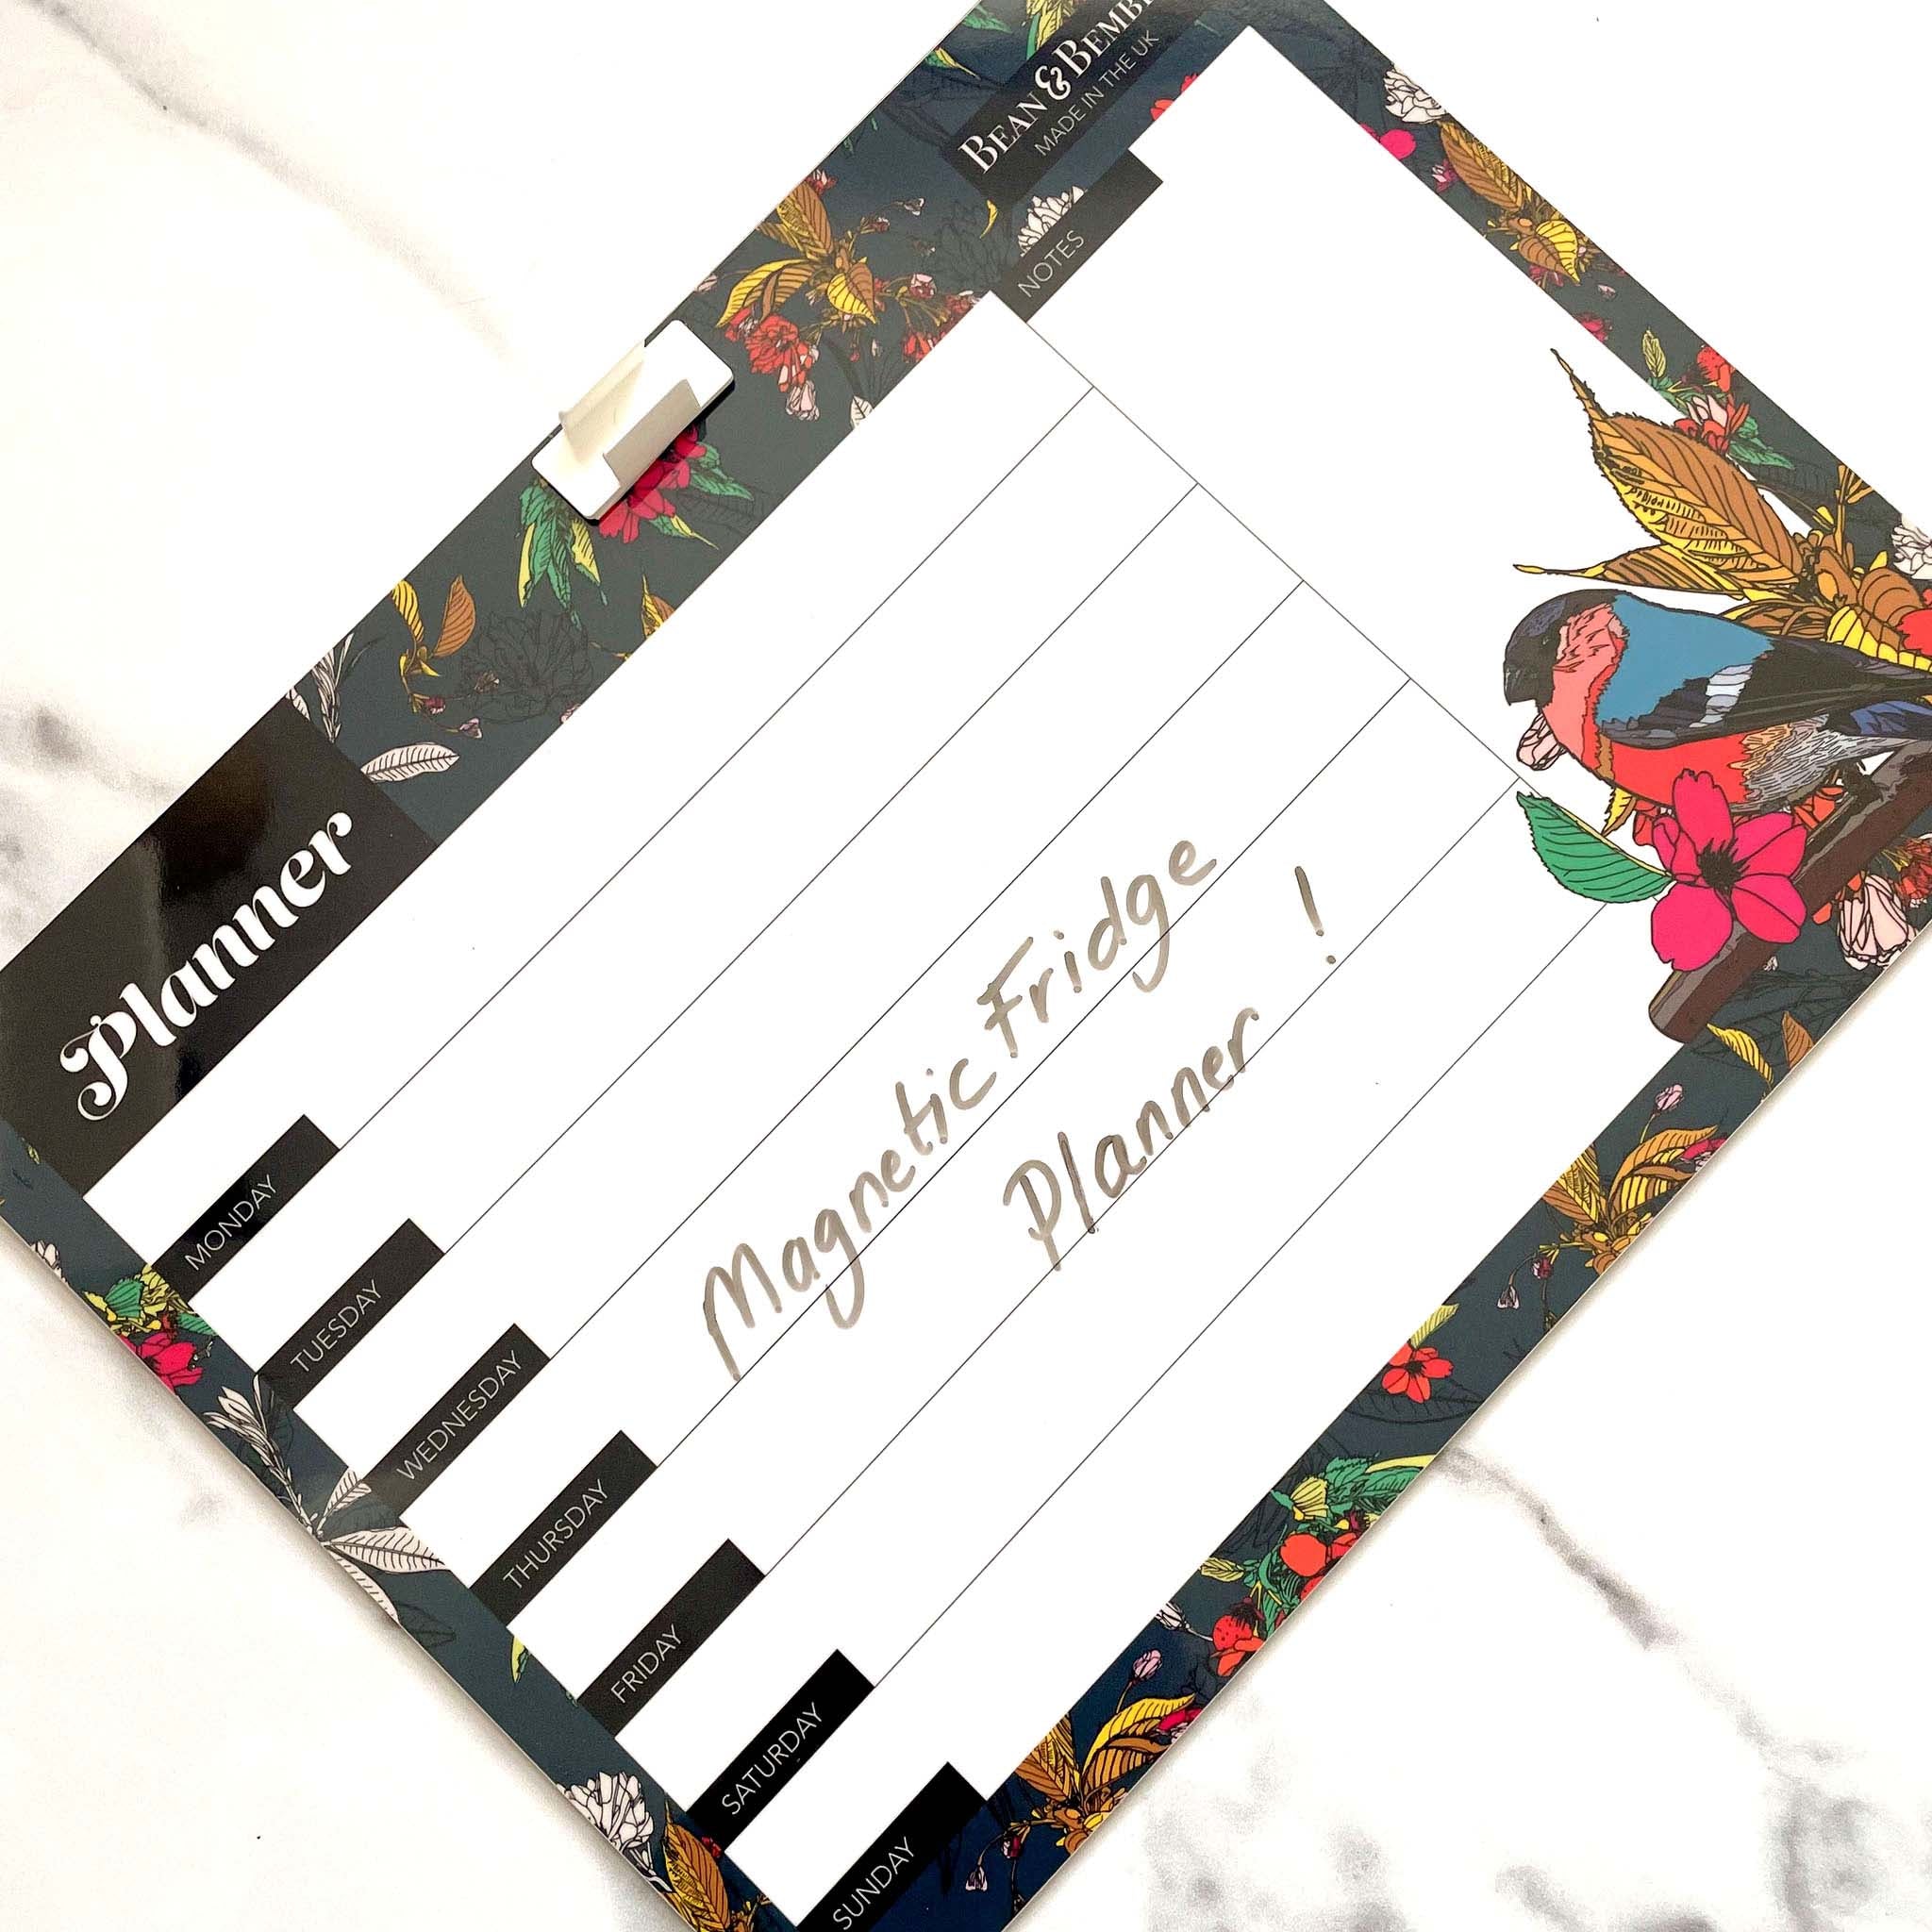 BEAN & BEMB
MADE IN THE UK
NOTES
Planner
MONDAY
TUESDAY
WEDNESDAY
THURSDAY
FRIDAY
SATURDAY
SUNDAY
Magnetic Fridge
Planner !